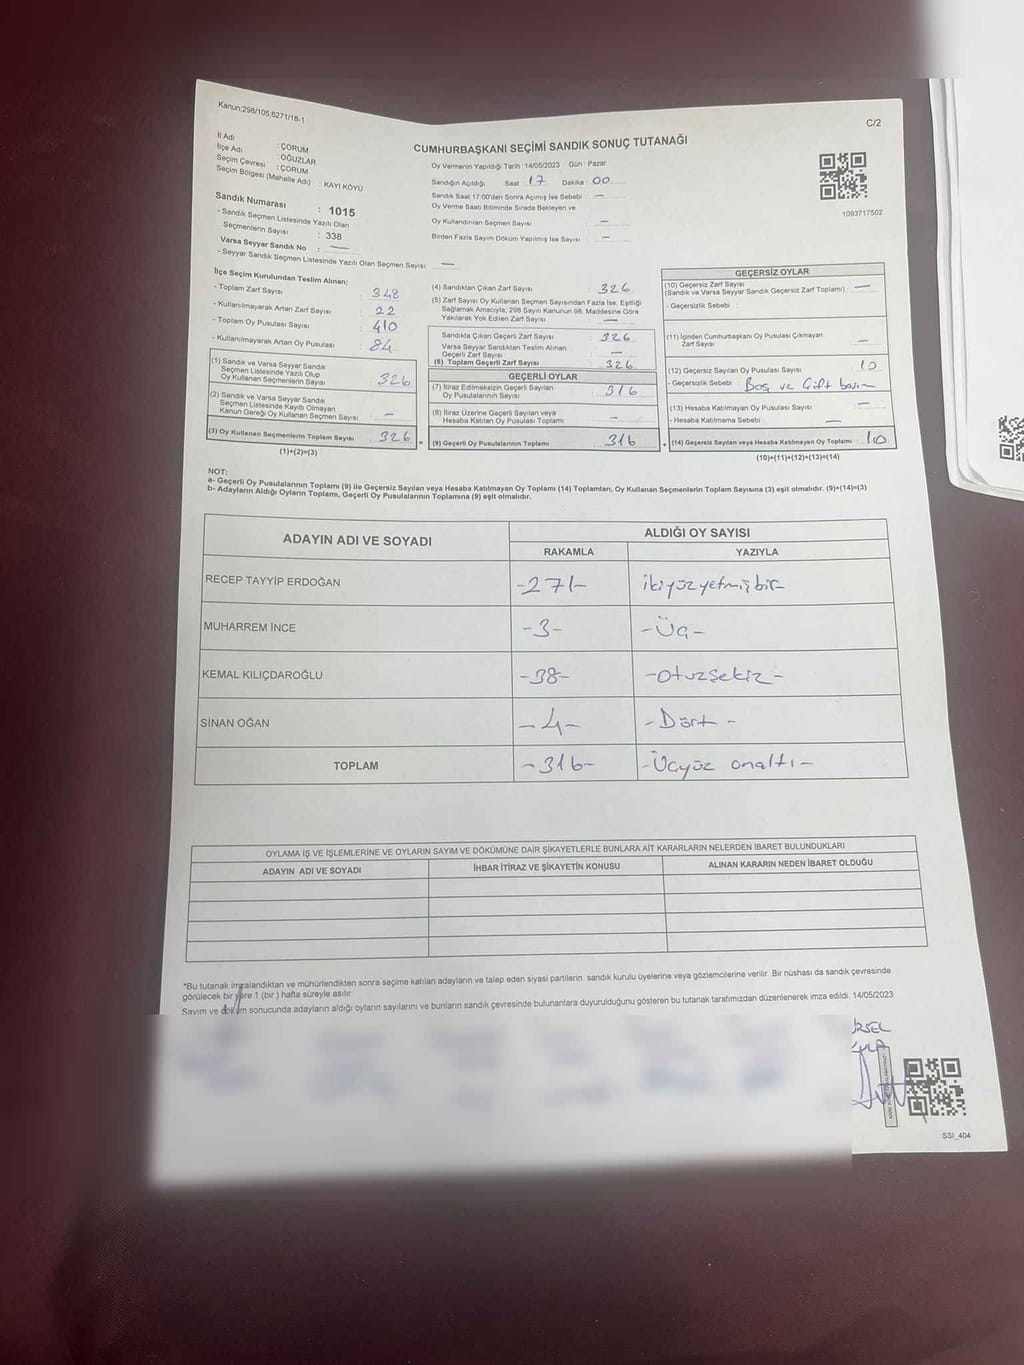 Kanun;298/105,6271/18-1
C/2
CUMHURBAŞKANI SEÇİMİ SANDIK SONUÇ TUTANAĞI
İl Adı : ÇORUM
İlçe Adı : OĞUZLAR
Seçim Çevresi : ÇORUM
Seçim Bölgesi (Mahalle Adı) KAYI KÖYÜ
Sandık Numarası : 1015
- Sandık Seçmen Listesinde Yazılı Olan
Seçmenlerin Sayısı : 338
Varsa Seyyar Sandık No : —
- Seyyar Sandık Seçmen Listesinde Yazılı Olan Seçmen Sayısı: —
Oy Vermenin Yapıldığı Tarih :14/05/2023 Gün : Pazar
Sandığın Açıldığı Saat 17 Dakika 00
Sandık Saat 17:00'den Sonra Açımış İse Sebebi : —
Oy Verme Saati Bitiminde Sırada Bekleyen ve
Oy Kullandırılan Seçmen Sayısı : —
Birden Fazla Sayım Döküm Yapılmış İse Sayısı : —
1093717502
İlçe Seçim Kurulundan Teslim Alınan;
- Toplam Zarf Sayısı : 348
- Kullanılmayarak Artan Zarf Sayısı : 22
- Toplam Oy Pusulası Sayısı : 410
- Kullanılmayarak Artan Oy Pusulası : 84
(1) Sandık ve Varsa Seyyar Sandık
Seçmen Listesinde Yazılı Olup
Oy Kullanan Seçmenlerin Sayısı : 326
(2) Sandık ve Varsa Seyyar Sandık
Seçmen Listesinde Kayıtlı Olmayan
Kanun Gereği Oy Kullanan Seçmen Sayısı : —
(3) Oy Kullanan Seçmenlerin Toplam Sayısı : 326
(1)+(2)=(3)
(4) Sandıktan Çıkan Zarf Sayısı : 326
(5) Zarf Sayısı Oy Kullanan Seçmen Sayısından Fazla İse, Eşitliği
Sağlamak Amacıyla, 298 Sayılı Kanunun 98. Maddesine Göre
Yakılarak Yok Edilen Zarf Sayısı : —
Sandıkta Çıkan Geçerli Zarf Sayısı : 326
Varsa Seyyar Sandıktan Teslim Alınan
Geçerli Zarf Sayısı : —
(6) Toplam Geçerli Zarf Sayısı : 326
GEÇERLİ OYLAR
(7) İtiraz Edilmeksizin Geçerli Sayılan
Oy Pusulalarının Sayısı : 316
(8) İtiraz Üzerine Geçerli Sayılan veya
Hesaba Katılan Oy Pusulası Toplamı : —
= (9) Geçerli Oy Pusulalarının Toplamı : 316
GEÇERSİZ OYLAR
(10) Geçersiz Zarf Sayısı
(Sandık ve Varsa Seyyar Sandık Geçersiz Zarf Toplamı) : —
- Geçersizlik Sebebi :
(11) İçinden Cumhurbaşkanı Oy Pusulası Çıkmayan
Zarf Sayısı : —
(12) Geçersiz Sayılan Oy Pusulası Sayısı : 10
- Geçersizlik Sebebi : Boş ve Çift basım
(13) Hesaba Katılmayan Oy Pusulası Sayısı : —
- Hesaba Katılmama Sebebi : —
+ (14) Geçersiz Sayılan veya Hesaba Katılmayan Oy Toplamı : 10
(10)+(11)+(12)+(13)=(14)
NOT:
a- Geçerli Oy Pusulalarının Toplamı (9) ile Geçersiz Sayılan veya Hesaba Katılmayan Oy Toplamı (14) Toplamları, Oy Kullanan Seçmenlerin Toplam Sayısına (3) eşit olmalıdır. (9)+(14)=(3)
b- Adayların Aldığı Oyların Toplamı, Geçerli Oy Pusulalarının Toplamına (9) eşit olmalıdır.
ADAYIN ADI VE SOYADI
ALDIĞI OY SAYISI
RAKAMLA YAZIYLA
RECEP TAYYİP ERDOĞAN -271- ikiyüzyetmişbir-
MUHARREM İNCE -3- -Üç-
KEMAL KILIÇDAROĞLU -38- -Otuzsekiz-
SİNAN OĞAN -4- -Dört-
TOPLAM -316- -Üçyüz onaltı-
OYLAMA İŞ VE İŞLEMLERİNE VE OYLARIN SAYIM VE DÖKÜMÜNE DAİR ŞİKAYETLERLE BUNLARA AİT KARARLARIN NELERDEN İBARET BULUNDUKLARI
ADAYIN ADI VE SOYADI İHBAR İTİRAZ VE ŞİKAYETİN KONUSU ALINAN KARARIN NEDEN İBARET OLDUĞU
*Bu tutanak imzalandıktan ve mühürlendikten sonra seçime katılan adayların ve talep eden siyasi partilerin sandık kurulu üyelerine veya gözlemcilerine verilir. Bir nüshası da sandık çevresinde
görülecek bir yere 1 (bir) hafta süreyle asılır.
Sayım ve döküm sonucunda adayların aldığı oyların sayılarını ve bunların sandık çevresinde bulunanlara duyurulduğunu gösteren bu tutanak tarafımızdan düzenlenerek imza edildi. 14/05/2023
SSI_404